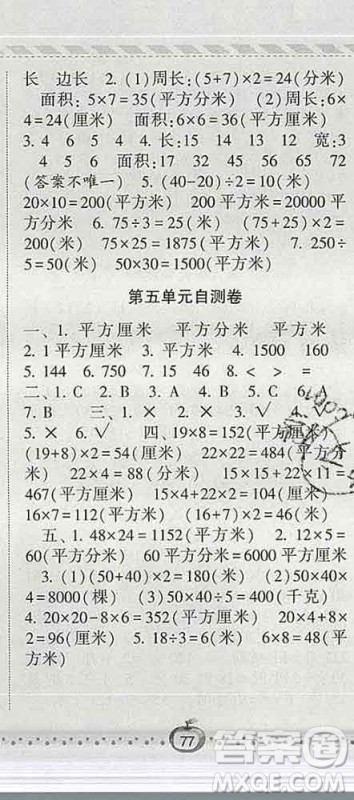 长　边长　2. (1)周长:(5+7)×2=24(分米)
面积:5×7=35(平方分米)　(2)周长:6×
4=24(厘米)　面积:6×6=36(平方厘米)
3. 4　5　6　4. 长:15　14　13　12　宽:3
4　5　6　面积:17　32　45　56　52
(答案不唯一)　5. (40-20)÷2=10(米)
20×10=200(平方米)　200平方米=20000平方
分米　6. 75÷3=25(米)　(75+25)×2=
200(米)　75×25=1875(平方米)　7. 250÷
5=50(米)　50×30=1500(平方米)
第五单元自测卷
一、1. 平方厘米　平方分米　平方米
2. 1平方厘米　3. 平方米　4. 1500　160
5. 144　6. 750　7. 15　46　8. <　>　=
二、1. C　2. B　3. A　4. B　5. C　6. A
7. B　三、1. ×　2. ×　3. √　4.
5. ×　6. √　四、19×8=152(平方厘米)
(19+8)×2=54(厘米)　22×22=484(平方米)
22×4=88(分米)　15×15+22×11=
467(平方米)　15×4+22×2=104(厘米)
16×7=112(平方米)　(16+7)×2=46(米)
五、1. 48×24=1152(平方米)　2. 12×5=
60(平方分米)　60平方分米=6000平方厘米
3. (1)(50+40)×2=180(米)　(2)50×40×
4=8000(棵)　(3)50×40÷5=400(千克)
4. 20×20-8×6=352(平方厘米)　20×4+8×
2=96(厘米)　5. 18÷3=6(米)　6×8=48(平
方米)
77
答案圈
MXQE.COM